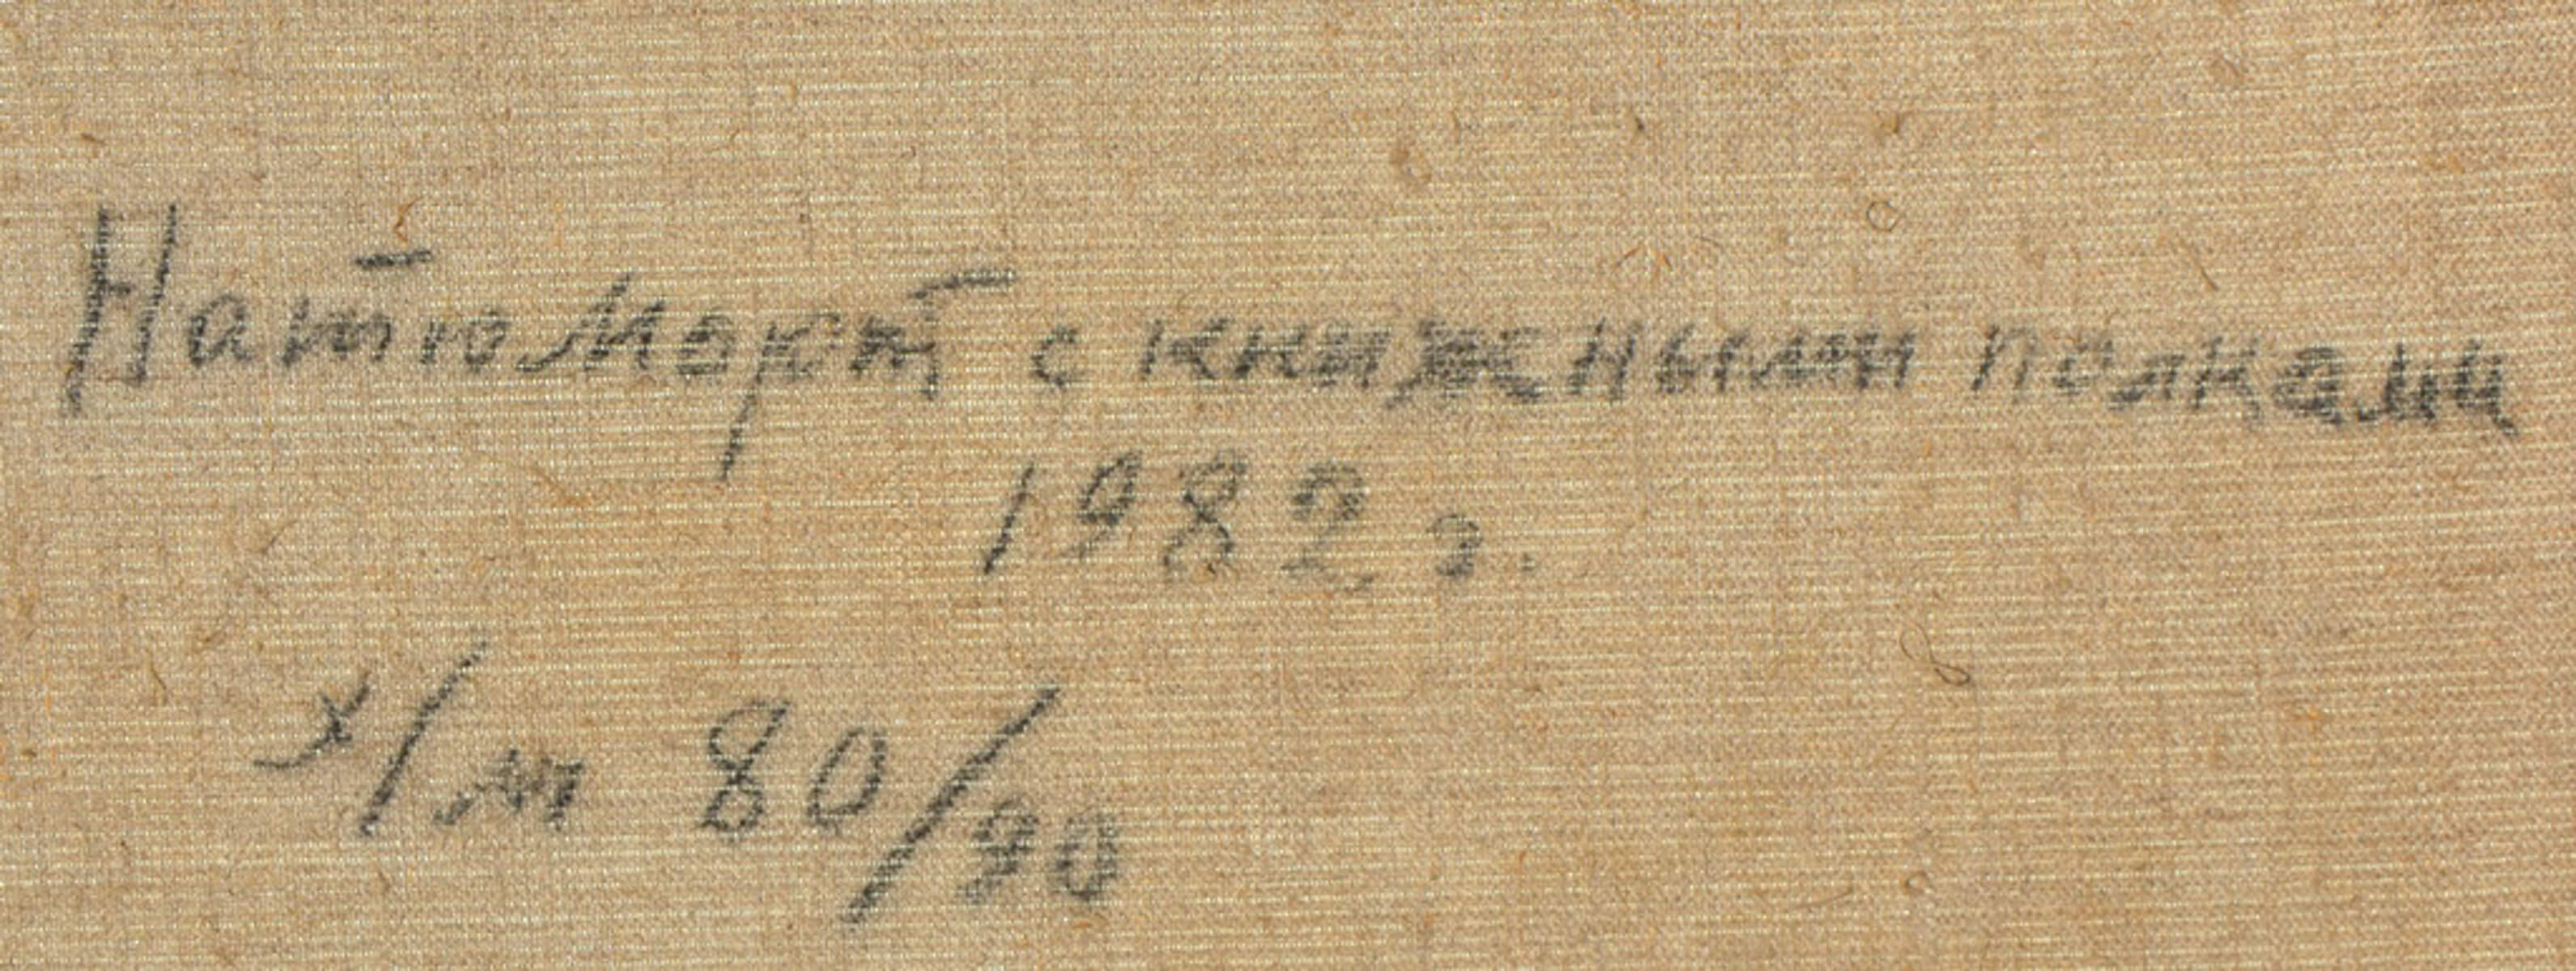 Натюморт с книжными полками
1982 г.
х/м 80/90